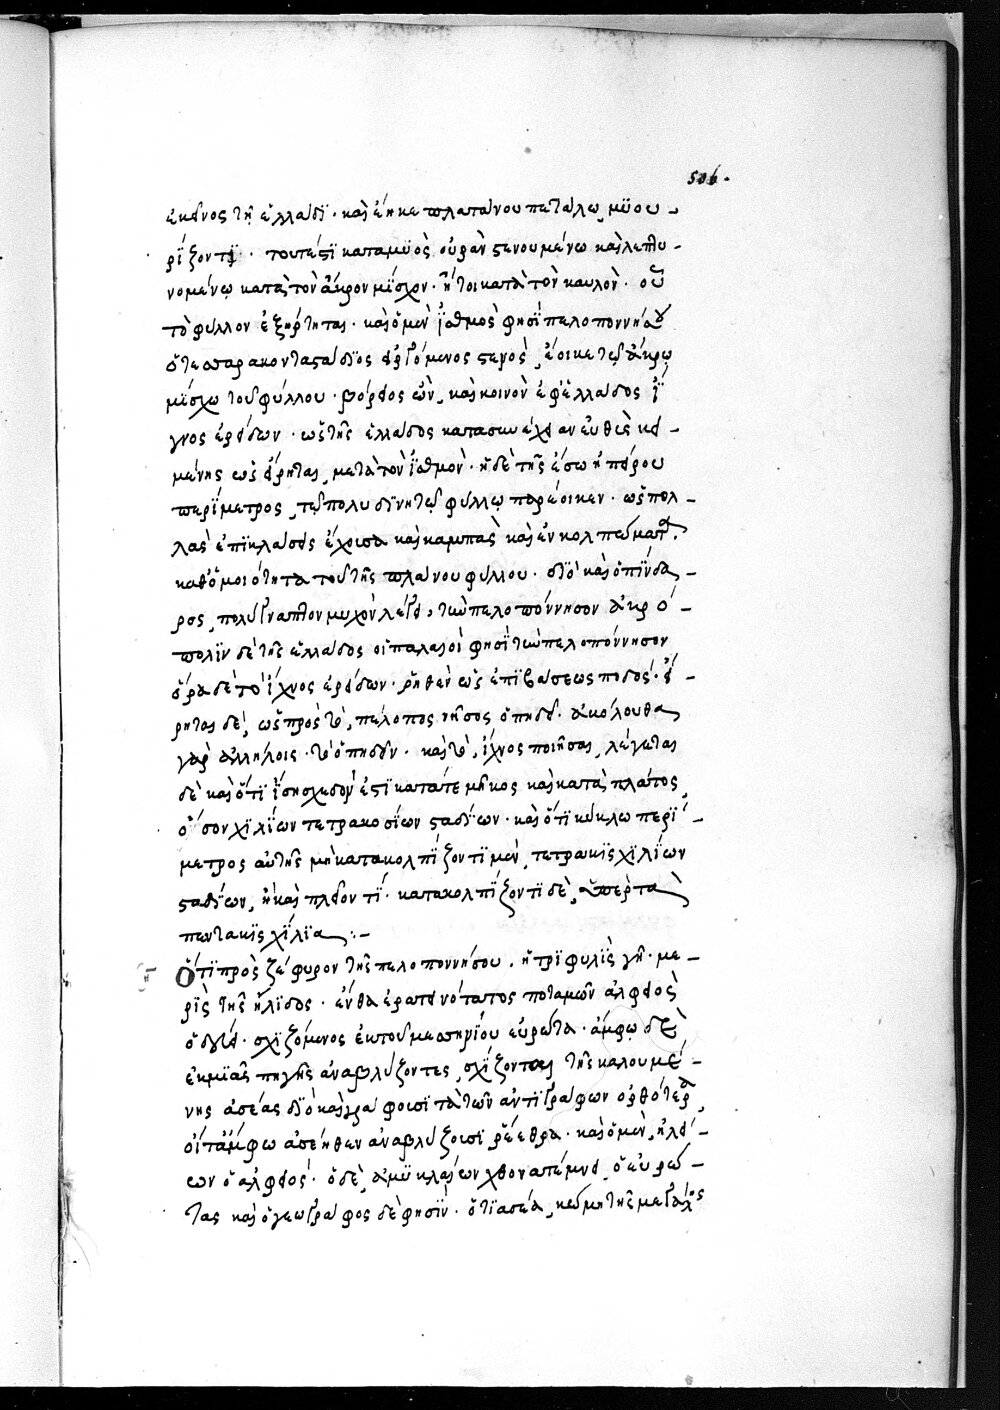 506.
ἐκεῖνος τῇ ἑλλάδι · καὶ ἔοικε πλατάνου πετάλῳ, μυου -
ρίζοντι · τουτέστι κατὰ μυὸς οὐρὰν στενουμένω καὶ λεπτυ -
νομένῳ κατὰ τὸν ἄκρον μίσχον · ἤτοι κατὰ τὸν καυλὸν · οὗ
τὸ φύλλον ἐξήρτηται · καὶ ὁ μὲν ἰσθμὸς φησὶ πελοποννήσου
ὅτε σαρακονταστάδιος ὀριζόμενος στενὸς, ἔοικε τῷ ἄκρῳ
μίσχω τοῦ φύλλου · βόρειος ὢν, καὶ κοινὸν ἐφ' ἑλλάδος ἴ
χνος ἐρείδων · ὡς τῆς ἑλλάδος κατασυνέχειαν εὐθὺς κει -
μένης ὡς εἴρηται, μετὰ τὸν ἰσθμὸν · ἡ δὲ τῆς ἔσω ἠπείρου
περίμετρος, τῷ πολυδινήτῳ φύλλῳ παρέοικεν · ὡς πολ -
λὰς ἐπικλάσεις ἔχουσα καὶ καμπὰς καὶ ἐν κολπώμασι,
καθ' ὁμοιότητα τοῦ τῆς πλατάνου φύλλου · διὸ καὶ ὁ πίνδα -
ρος, πολύγναπτον μυχὸν λέγει, τὴν πελοπόννησον ἀκρό -
πολιν δὲ τῆς ἑλλάδος οἱ παλαιοί φησὶ τὴν πελοπόννησον
ὅρα δὲ τὸ ἴχνος ἐρείδων · ῥηθὲν ὡς ἐπιβάσεως ποδός · εἴ -
ρηται δὲ, ὡς πρὸς τὸ, πέλοπος νῆσος ὀπηδεῖ · ἀκόλουθα
γὰρ ἀλλήλοις · τὸ ὀπηδεῖν · καὶ τὸ, ἴχνος ποιῆσαι, λέγεται
δὲ καὶ ὅτι ἴση σχεδόν ἐστι κατά τε μῆκος καὶ κατὰ πλάτος,
ὅσον χιλίων τετρακοσίων σταδίων · καὶ ὅτι κύκλω περί -
μετρος αὐτῆς μὴ κατακολπίζοντι μὲν, τετρακισχιλίων
σταδίων, ἢ καὶ πλεῖόν τι · κατακολπίζοντι δὲ, ὑπὲρ τὰ
πεντακισχίλια :-
Ὅτι πρὸς ζέφυρον τῆς πελοποννήσου, ἡ τριφυλὶς γῆ · με -
ρὶς τῆς ἤλιδος · ἔνθα ἐρατεινότατος ποταμῶν ἀλφειὸς
ὁδεύει · σχιζόμενος ἐκ τοῦ μεσσηνίου εὐρώτα · ἄμφω δὲ
ἐκ μιᾶς πηγῆς ἀναβλύζοντες, σχίζονται τῆς καλουμέ -
νης ἀσέας διὸ καὶ γράφουσι τὰ τῶν ἀντιγράφων ὀρθότερα,
οἵ τ' ἄμφω ἀσέηθεν ἀναβλύζουσι ῥέεθρα · καὶ ὁ μὲν, ἠλεί -
ων ὁ ἀλφειός · ὁ δὲ, ἀμυκλαίων χθόνα τέμνει, ὁ εὐρώ -
τας καὶ ὁ γεωγράφος δὲ φησὶν · ὅτι ἀσέα, κώμη τῆς μεγαλο